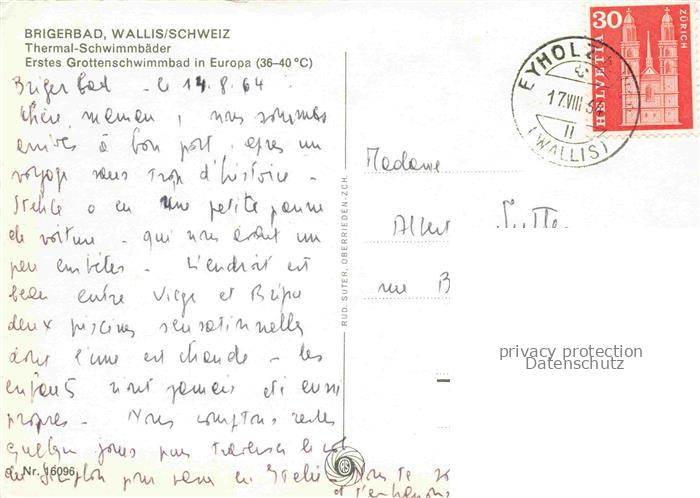 BRIGERBAD, WALLIS/SCHWEIZ
Thermal-Schwimmbäder
Erstes Grottenschwimmbad in Europa (36–40 °C)
Brigerbad - le 14.8.64
Chère maman, nous sommes
arrivés à bon port, après un
voyage sans trop d'histoire -
a eu une petite panne
de voiture - qui nous avait un
peu embêtés - L'endroit est
beau entre Viège et Brigue
deux piscines sensationnelles
dont l'une est chaude - les
enfants n'ont jamais été aussi
propres - Nous comptons rester
quelques jours puis traverser le col
du Simplon pour venir en Italie - Nous te
et t'embrassons
Nr. 16096
RUD. SUTER, OBERRIEDEN-ZCH.
Madame
Albert
rue B
30
HELVETIA
ZÜRICH
EYHOLZ
17.VIII
II
(WALLIS)
privacy protection
Datenschutz